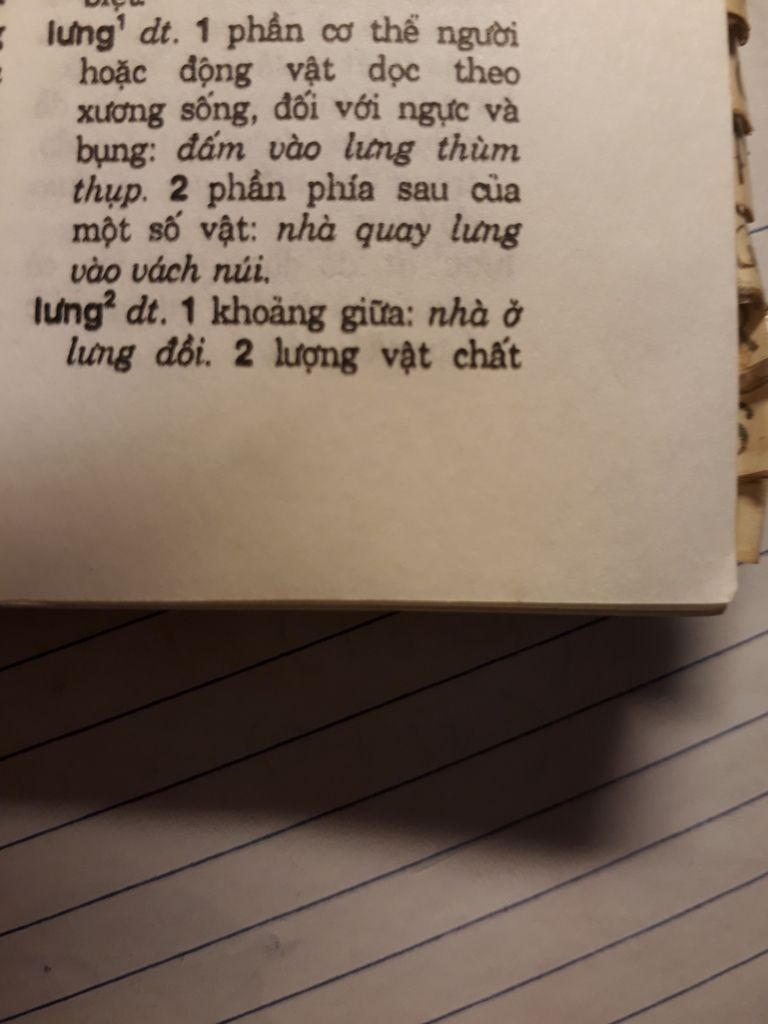 lưng¹ dt. 1 phần cơ thể người
hoặc động vật dọc theo
xương sống, đối với ngực và
bụng: đấm vào lưng thùm
thụp. 2 phần phía sau của
một số vật: nhà quay lưng
vào vách núi.
lưng² dt. 1 khoảng giữa: nhà ở
lưng đồi. 2 lượng vật chất